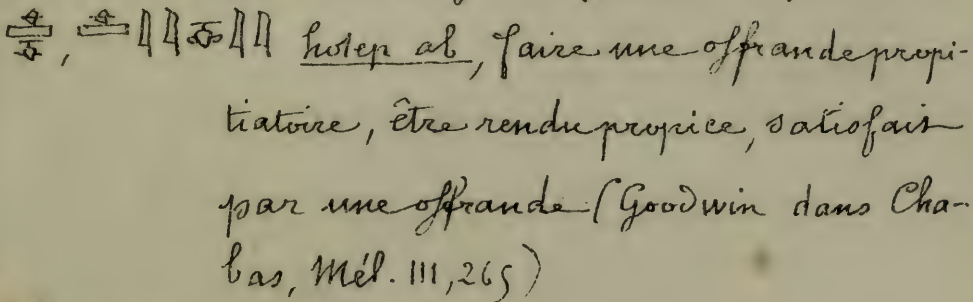 hotep ab, faire une offrande propi-
tiatoire, être rendu propice, satisfait
par une offrande (Goodwin dans Cha-
bas, Mél. III, 265)